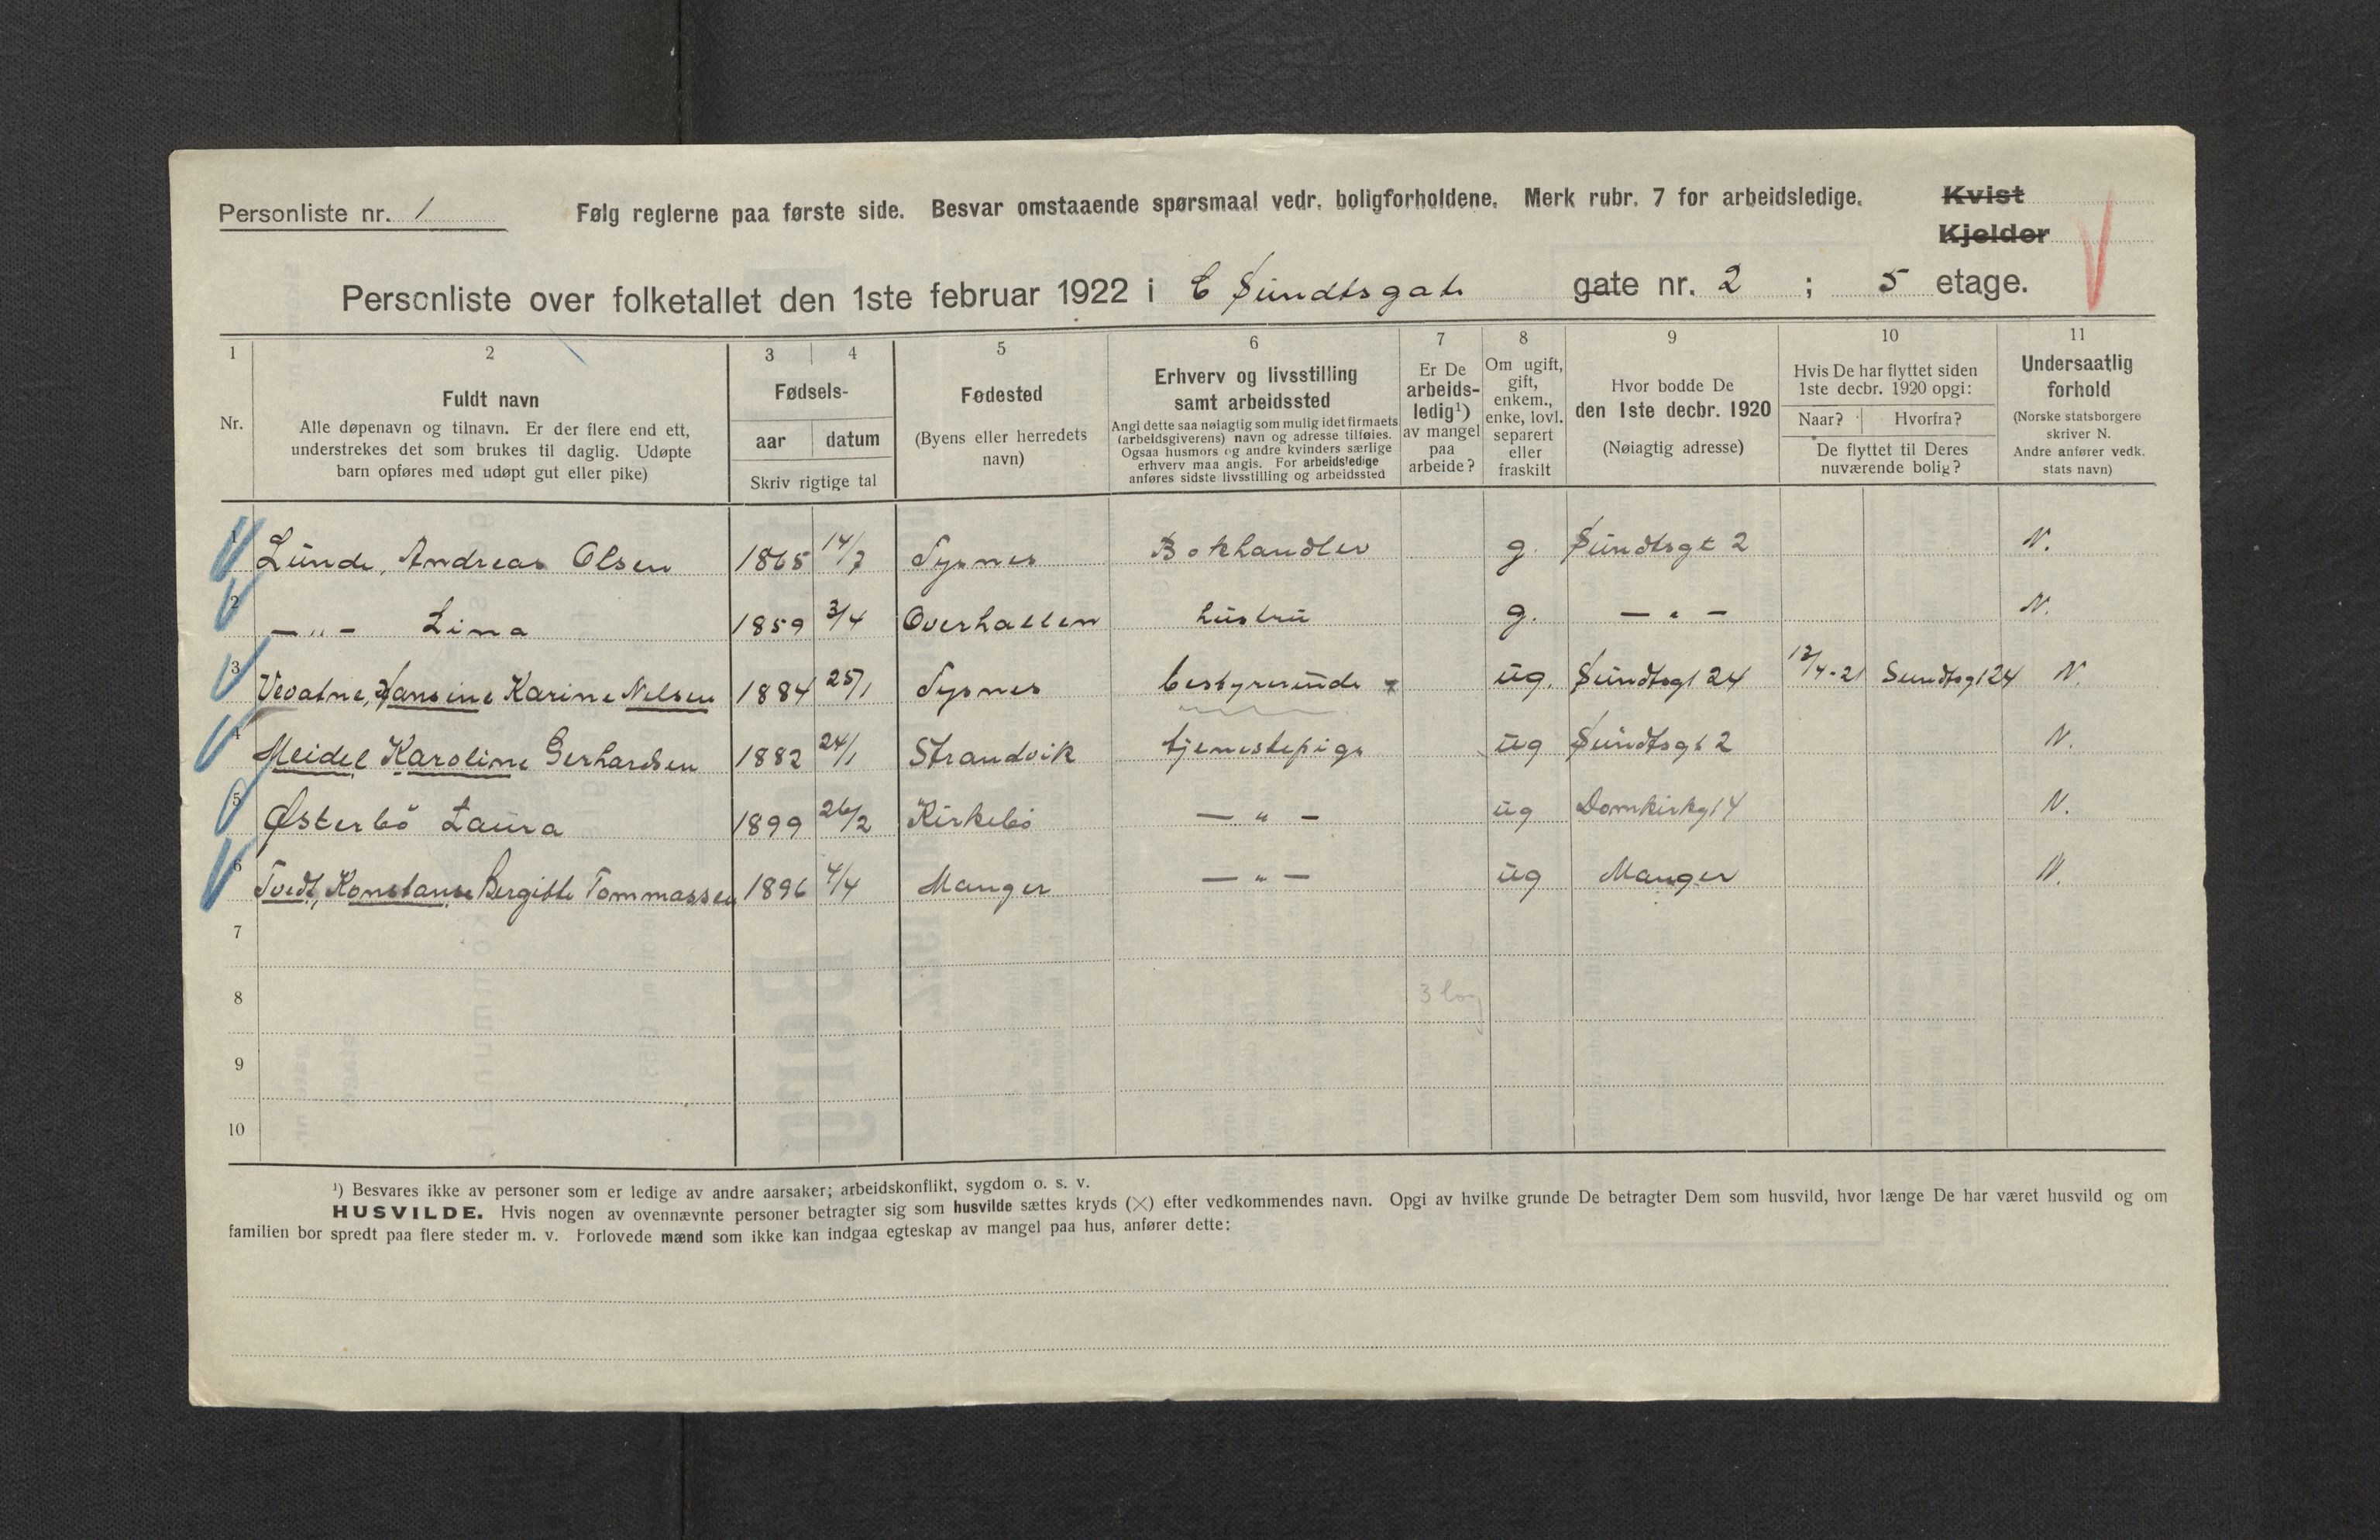 Personliste nr. 1
Følg reglerne paa første side. Besvar omstaaende spørsmaal vedr. boligforholdene. Merk rubr. 7 for arbeidsledige.
Kvist
Kjelder
Personliste over folketallet den 1ste februar 1922 i C Sundtsgate gate nr. 2 ; 5 etage.
1 2 3 4 5 6 7 8 9 10 11
Nr.
Fuldt navn
Alle døpenavn og tilnavn. Er der flere end ett,
understrekes det som brukes til daglig. Udøpte
barn opføres med udøpt gut eller pike)
Fødsels-
aar datum
Skriv rigtige tal
Fødested
(Byens eller herredets
navn)
Erhverv og livsstilling
samt arbeidssted
Angi dette saa nøiagtig som mulig idet firmaets
(arbeidsgiverens) navn og adresse tilføies.
Ogsaa husmors og andre kvinders særlige
erhverv maa angis. For arbeidsledige
anføres sidste livsstilling og arbeidssted
Er De
arbeids-
ledig¹)
av mangel
paa
arbeide?
Om ugift,
gift,
enkem.,
enke, lovl.
separert
eller
fraskilt
Hvor bodde De
den 1ste decbr. 1920
(Nøiagtig adresse)
Hvis De har flyttet siden
1ste decbr. 1920 opgi:
Naar? Hvorfra?
De flyttet til Deres
nuværende bolig?
Undersaatlig
forhold
(Norske statsborgere
skriver N.
Andre anfører vedk.
stats navn)
1 Lunde, Andreas Olsen 1865 14/7 Tysnes Bokhandler g. Sundtsgt 2 N.
2 — „ — Lina 1859 3/4 Overhallen hustru g. — „ — N.
3 Vevatne, Hansine Karine Nilsen 1884 25/1 Tysnes bestyrerinde ug. Sundtsgt 24 12/4-21 Sundtsgt 24 N.
4 Meidel Karoline Gerhardsen 1882 24/1 Strandvik tjenestepige ug Sundtsgt 2 N.
5 Østerbö Laura 1899 26/2 Kirkebö — „ — ug Domkirkegt 4 N.
6 Tvedt, Konstanse Bergitte Tommassen 1896 4/4 Manger — „ — ug Manger N.
7
8 3
9
10
¹) Besvares ikke av personer som er ledige av andre aarsaker; arbeidskonflikt, sygdom o. s. v.
HUSVILDE. Hvis nogen av ovennævnte personer betragter sig som husvilde sættes kryds (×) efter vedkommendes navn. Opgi av hvilke grunde De betragter Dem som husvild, hvor længe De har været husvild og om
familien bor spredt paa flere steder m. v. Forlovede mænd som ikke kan indgaa egteskap av mangel paa hus, anfører dette: